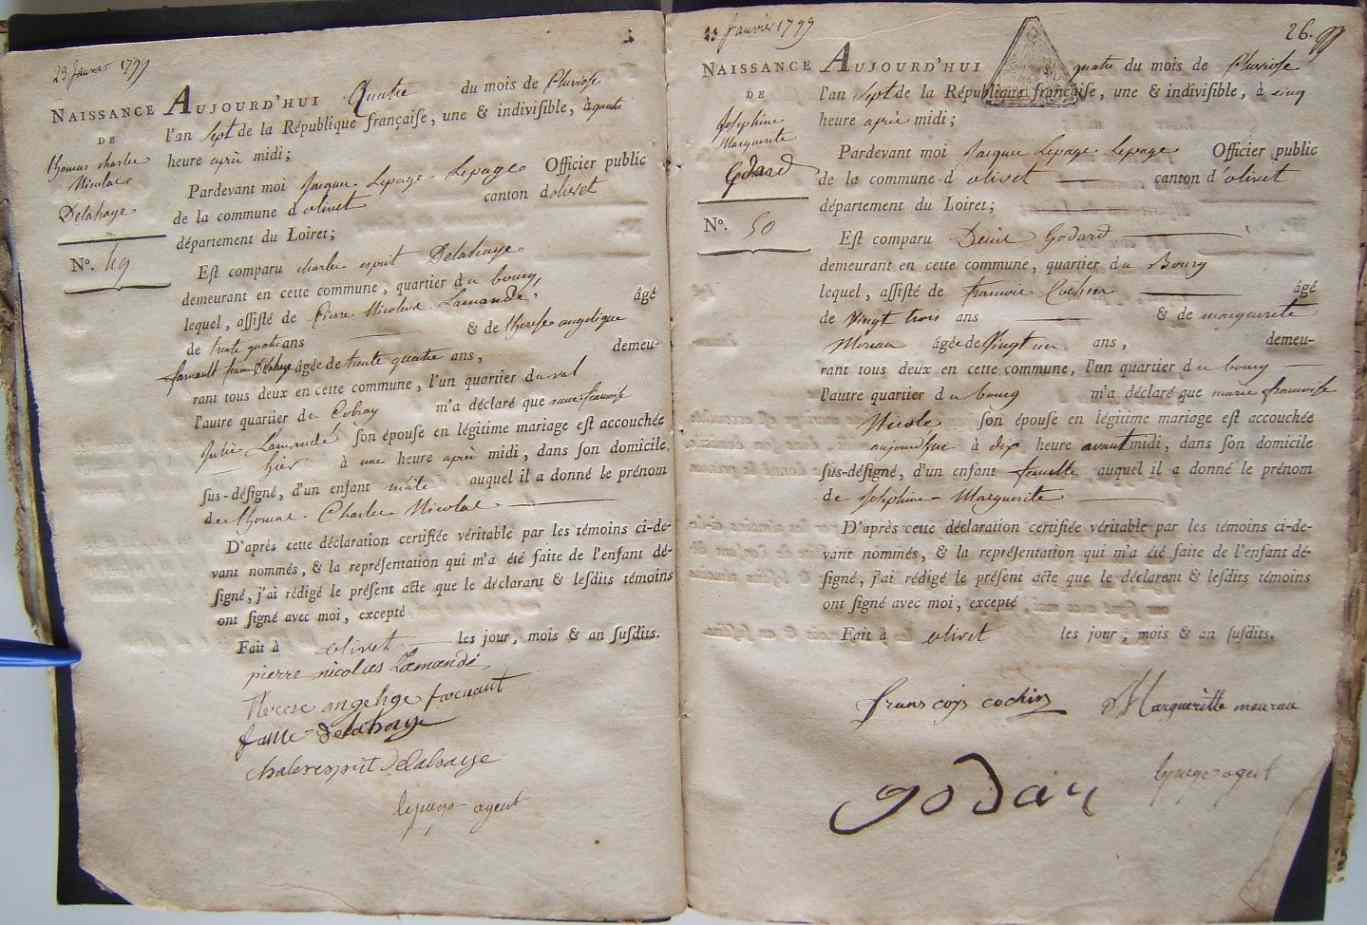 23 Janvier 1799
NAISSANCE
DE
thomas charles
Nicolas
Delahaye
N°. 49
AUJOURD'HUI Quatre du mois de Pluviose
l'an Sept de la République françaiſe, une & indiviſible, à quatre
heure après midi;
Pardevant moi Jacque Lepage Lepage Officier public
de la commune d olivet canton d olivet
département du Loiret;
Eſt comparu charle esprit Delahaye
demeurant en cette commune, quartier du bourg,
lequel, aſſiſté de Pierre Nicolas Lamandé, âgé
de trente quatre ans & de therese angelique
farnault femme Delahaye âgée de trente quatre ans, demeu-
rant tous deux en cette commune, l'un quartier du val
l'autre quartier de Cobray m'a déclaré que françoise
Julie Lamandé ſon épouse en légitime mariage eſt accouchée
hier à une heure après midi, dans ſon domicile
ſus-déſigné, d'un enfant mâle auquel il a donné le prénom
de thomas Charles Nicolas
D'après cette déclaration certifiée véritable par les témoins ci-de-
vant nommés, & la repréſentation qui m'a été faite de l'enfant dé-
ſigné, j'ai rédigé le préſent acte que le déclarant & leſdits témoins
ont ſigné avec moi, excepté
Fait à olivet les jour, mois & an ſuſdits.
pierre nicolas Lamandé
Therese angelige farnaut
famme delahaye
charlesesprit Delahaye
lepage agent
23 Janvier 1799
26.
NAISSANCE
DE
Joséphine
Marguerite
Godard
N°. 50
AUJOURD'HUI quatre du mois de Pluviose
l'an Sept de la République françaiſe, une & indiviſible, à cinq
heure après midi;
Pardevant moi Jacque Lepage Lepage Officier public
de la commune d olivet canton d'olivet
département du Loiret;
Eſt comparu Denis Godard
demeurant en cette commune, quartier du Bourg
lequel, aſſiſté de francois Cochin âgé
de vingt trois ans & de marguerite
Moreau âgée de Vingt un ans, demeu-
rant tous deux en cette commune, l'un quartier du bourg
l'autre quartier du bourg m'a déclaré que marie françoise
Nicole ſon épouse en légitime mariage eſt accouchée
aujourd'hui à dix heure avant midi, dans ſon domicile
ſus-déſigné, d'un enfant femelle auquel il a donné le prénom
de Joséphine - Marguerite
D'après cette déclaration certifiée véritable par les témoins ci-de-
vant nommés, & la repréſentation qui m'a été faite de l'enfant dé-
ſigné, j'ai rédigé le préſent acte que le déclarant & leſdits témoins
ont ſigné avec moi, excepté
Fait à olivet les jour, mois & an ſuſdits.
francoys cochin Margueritte moureau
godar
lepage agent